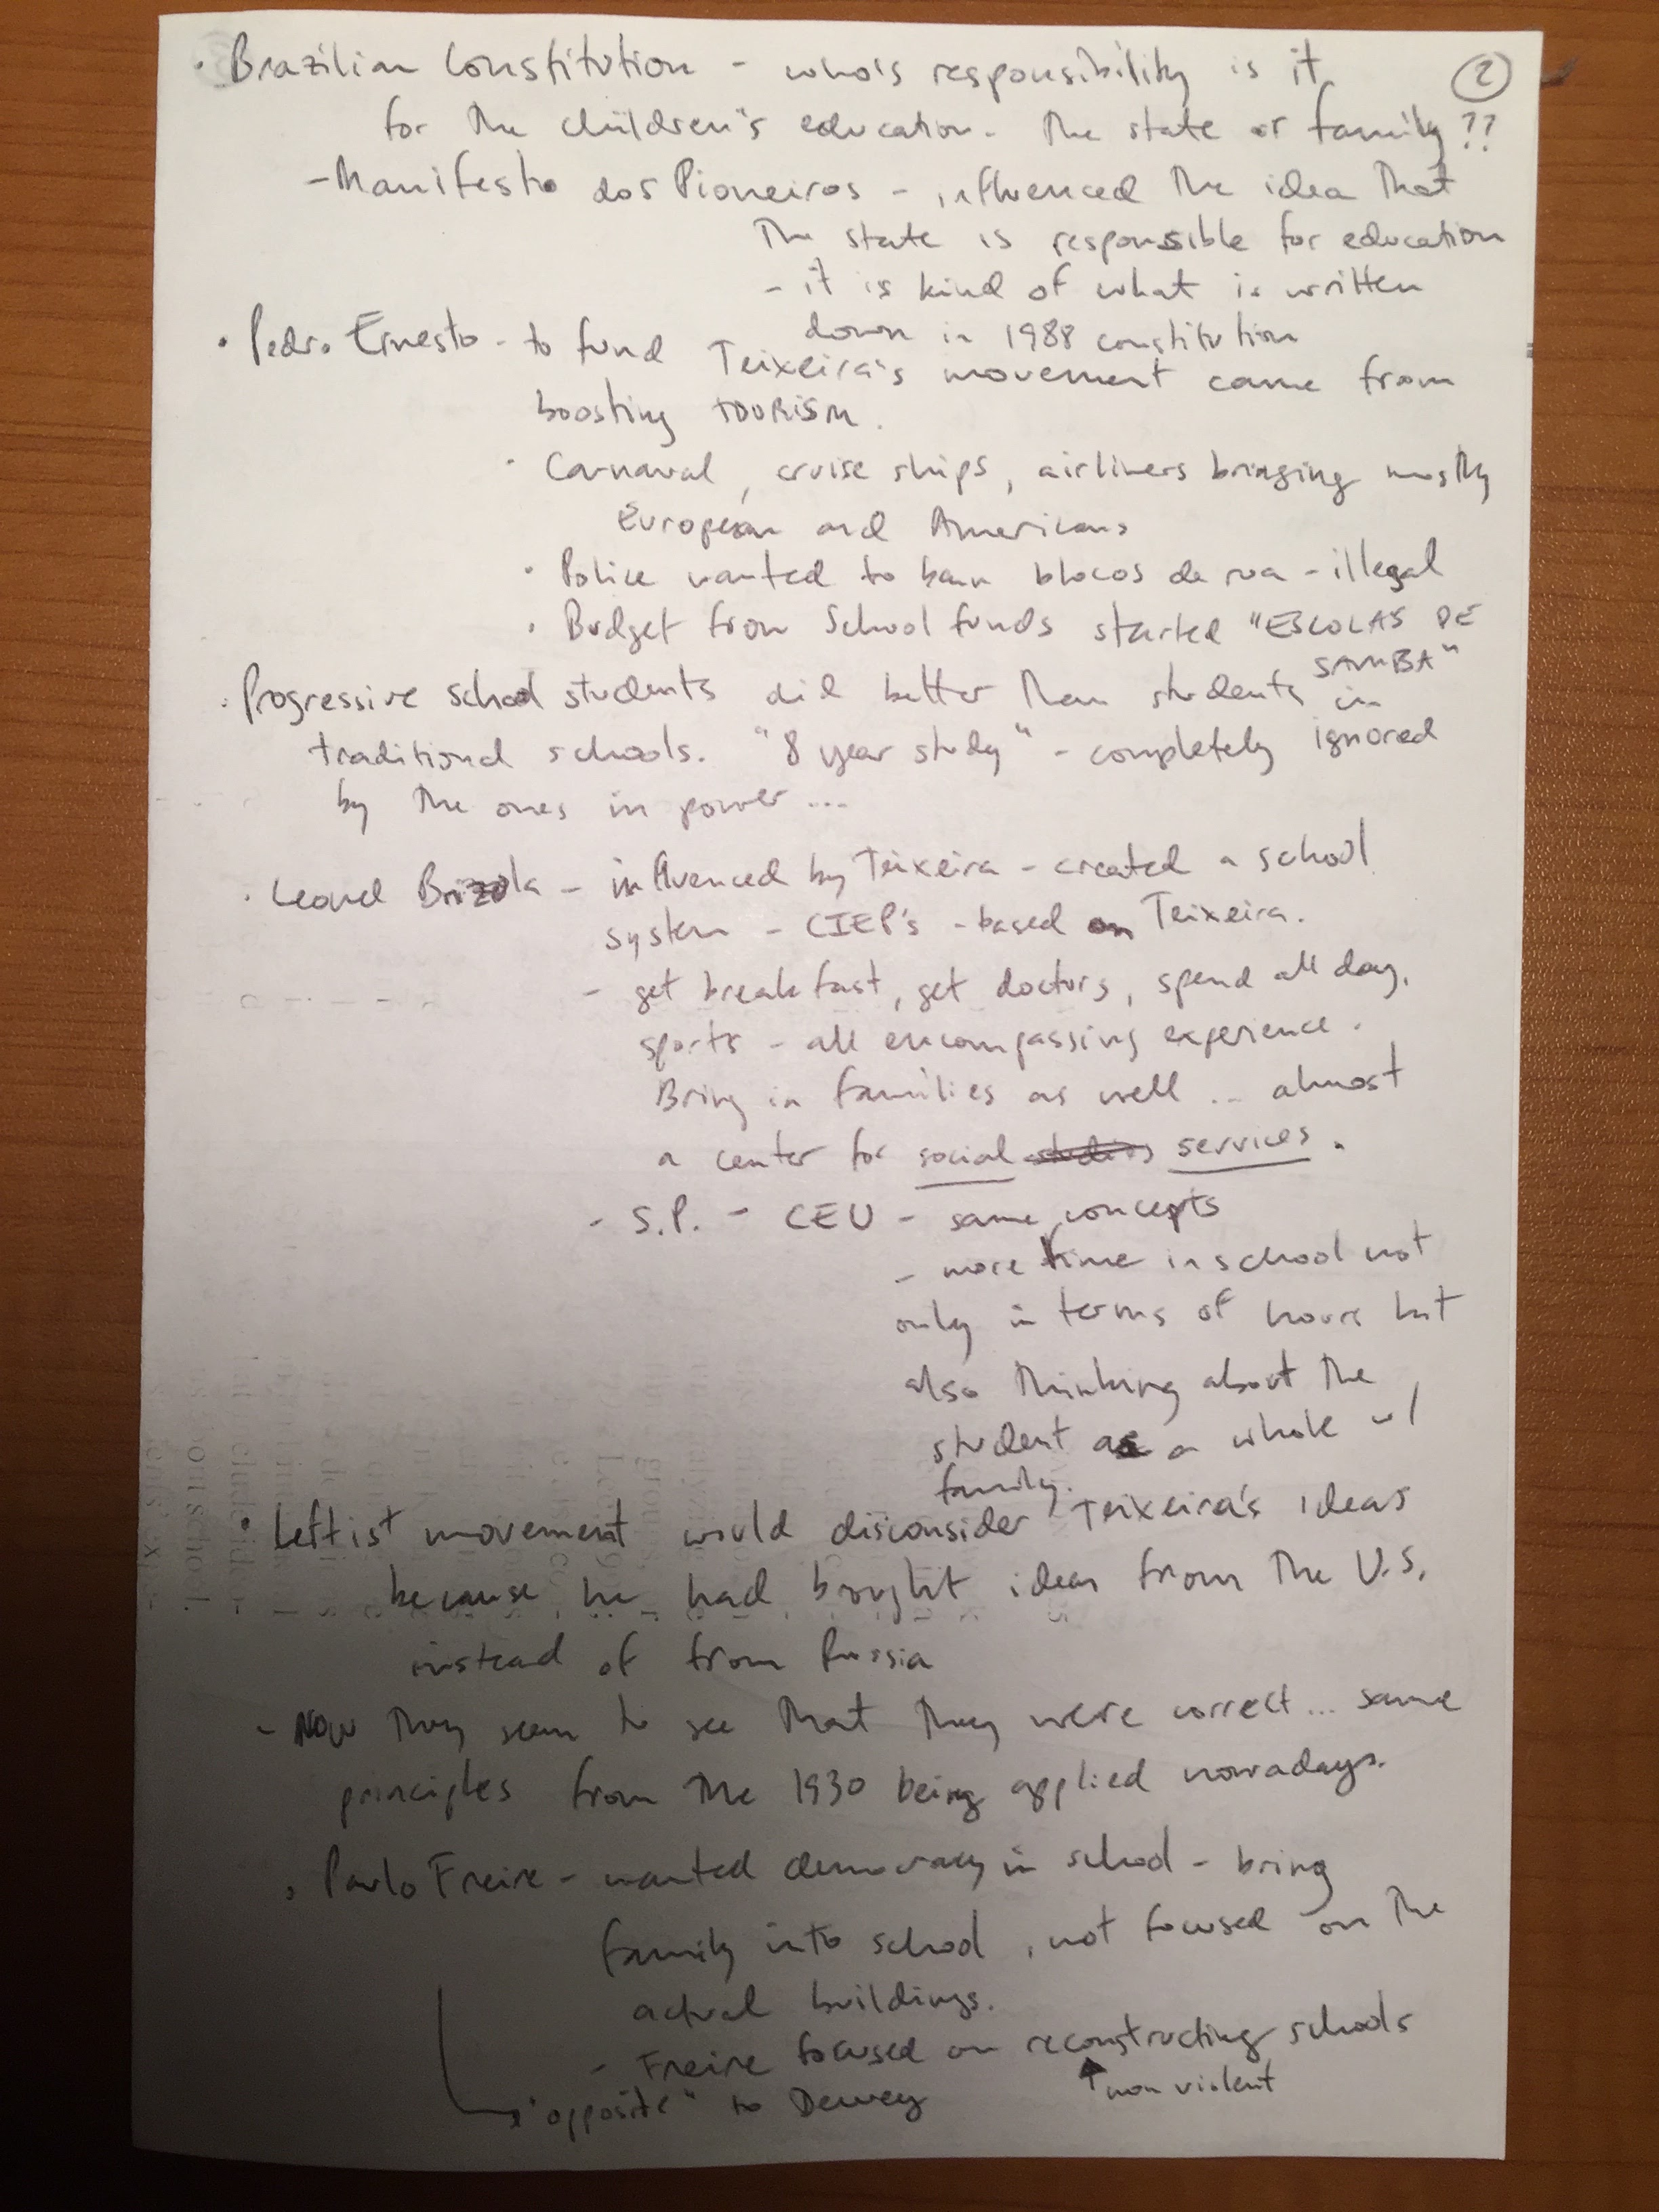 · Brazilian Constitution - who's responsibility is it ②
for the children's education. The state or family??
- Manifesto dos Pioneiros - influenced the idea that
The state is responsible for education
- it is kind of what is written
down in 1988 constitution
· Pedro Ernesto - to fund Teixeira's movement came from
boosting tourism.
· Carnaval, cruise ships, airliners bringing mostly
European and Americans
· Police wanted to ban blocos de rua - illegal
· Budget from School funds started "ESCOLAS DE
SAMBA"
· Progressive school students did better than students in
traditional schools. "8 year study" - completely ignored
by the ones in power...
· Leonel Brizola - influenced by Teixeira - created a school
system - CIEP's - based on Teixeira.
- get breakfast, get doctors, spend all day,
sports - all encompassing experience.
Bring in families as well... almost
a center for social studies services.
- S.P. - CEU - same concepts
- more time in school not
only in terms of hours but
also thinking about the
student as a whole w/
family.
· Leftist movement would disconsider Teixeira's ideas
because he had brought ideas from the U.S.
instead of from Russia
- Now they seem to see that they were correct... same
principles from the 1930 being applied nowadays.
· Paulo Freire - wanted democracy in school - bring
family into school, not focused on the
actual buildings.
- Freire focused on reconstructing schools
non violent
"opposite" to Dewey